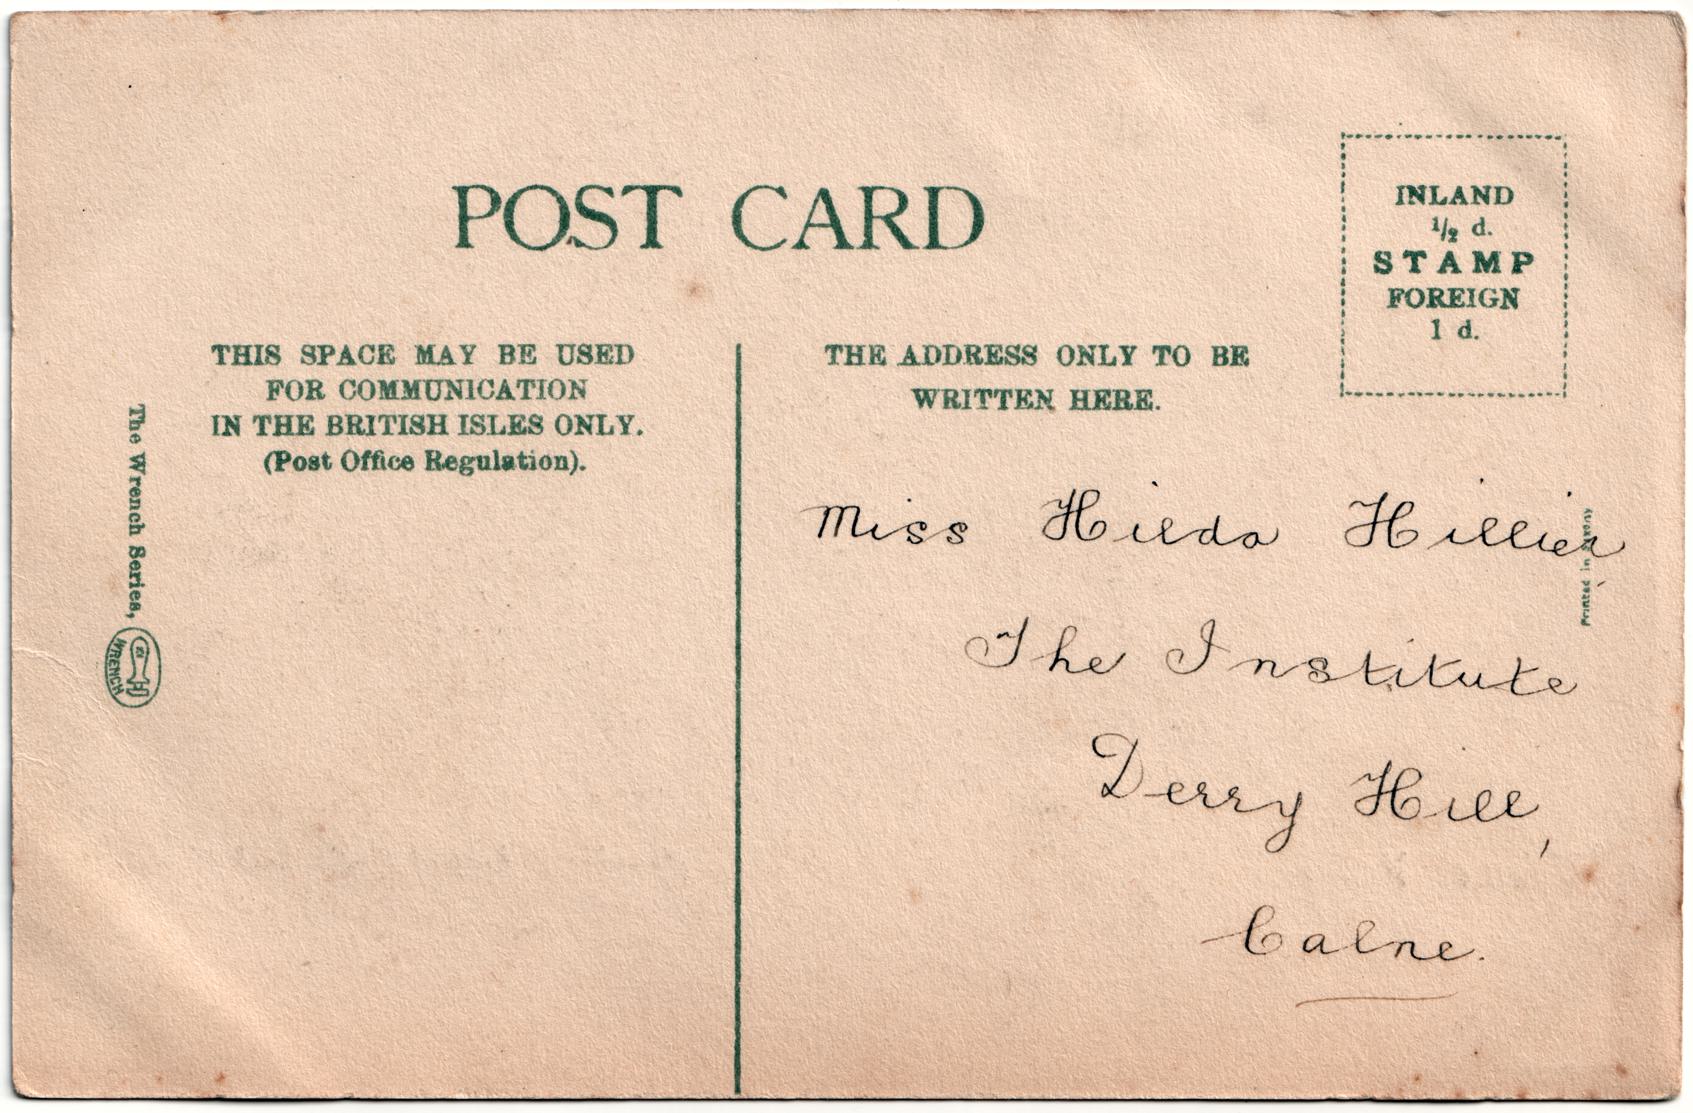 POST CARD
INLAND
1/2 d.
STAMP
FOREIGN
1 d.
THIS SPACE MAY BE USED
FOR COMMUNICATION
IN THE BRITISH ISLES ONLY.
(Post Office Regulation).
THE ADDRESS ONLY TO BE
WRITTEN HERE.
The Wrench Series,
WRENCH
Miss Hilda Hillier,
The Institute
Derry Hill,
Calne.
Printed in Saxony